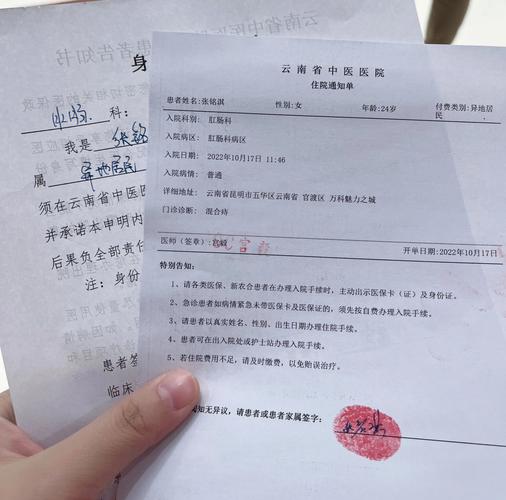 云南省中医医
患者告知书
身
肛肠 科：
我是 张铭
属 异地居民
须在云南省中医医
并承诺本申明内
后果负全部责任
注：身份
患者签
临床
云南省中医医院
住院通知单
患者姓名:张铭淇 性别:女 年龄:24岁 付费类别:异地居民
入院科别: 肛肠科
入院病区: 肛肠科病区
入院日期: 2022年10月17日 11:46
入院病情: 普通
详细地址: 云南省昆明市五华区云南省 官渡区 万科魅力之城
门诊诊断: 混合痔
医师（签章）:宫毅 开单日期:2022年10月17日
特别告知：
1、请各类医保、新农合患者在办理入院手续时，主动出示医保卡（证）及身份证。
2、急诊患者如病情紧急未带医保卡及医保证的，须先按自费办理入院手续。
3、请患者以真实姓名、性别、出生日期办理住院手续。
4、患者可在出入院处或护士站办理入院手续。
5、若住院费用不足，请及时缴费，以免贻误治疗。
知无异议，请患者或患者家属签字：